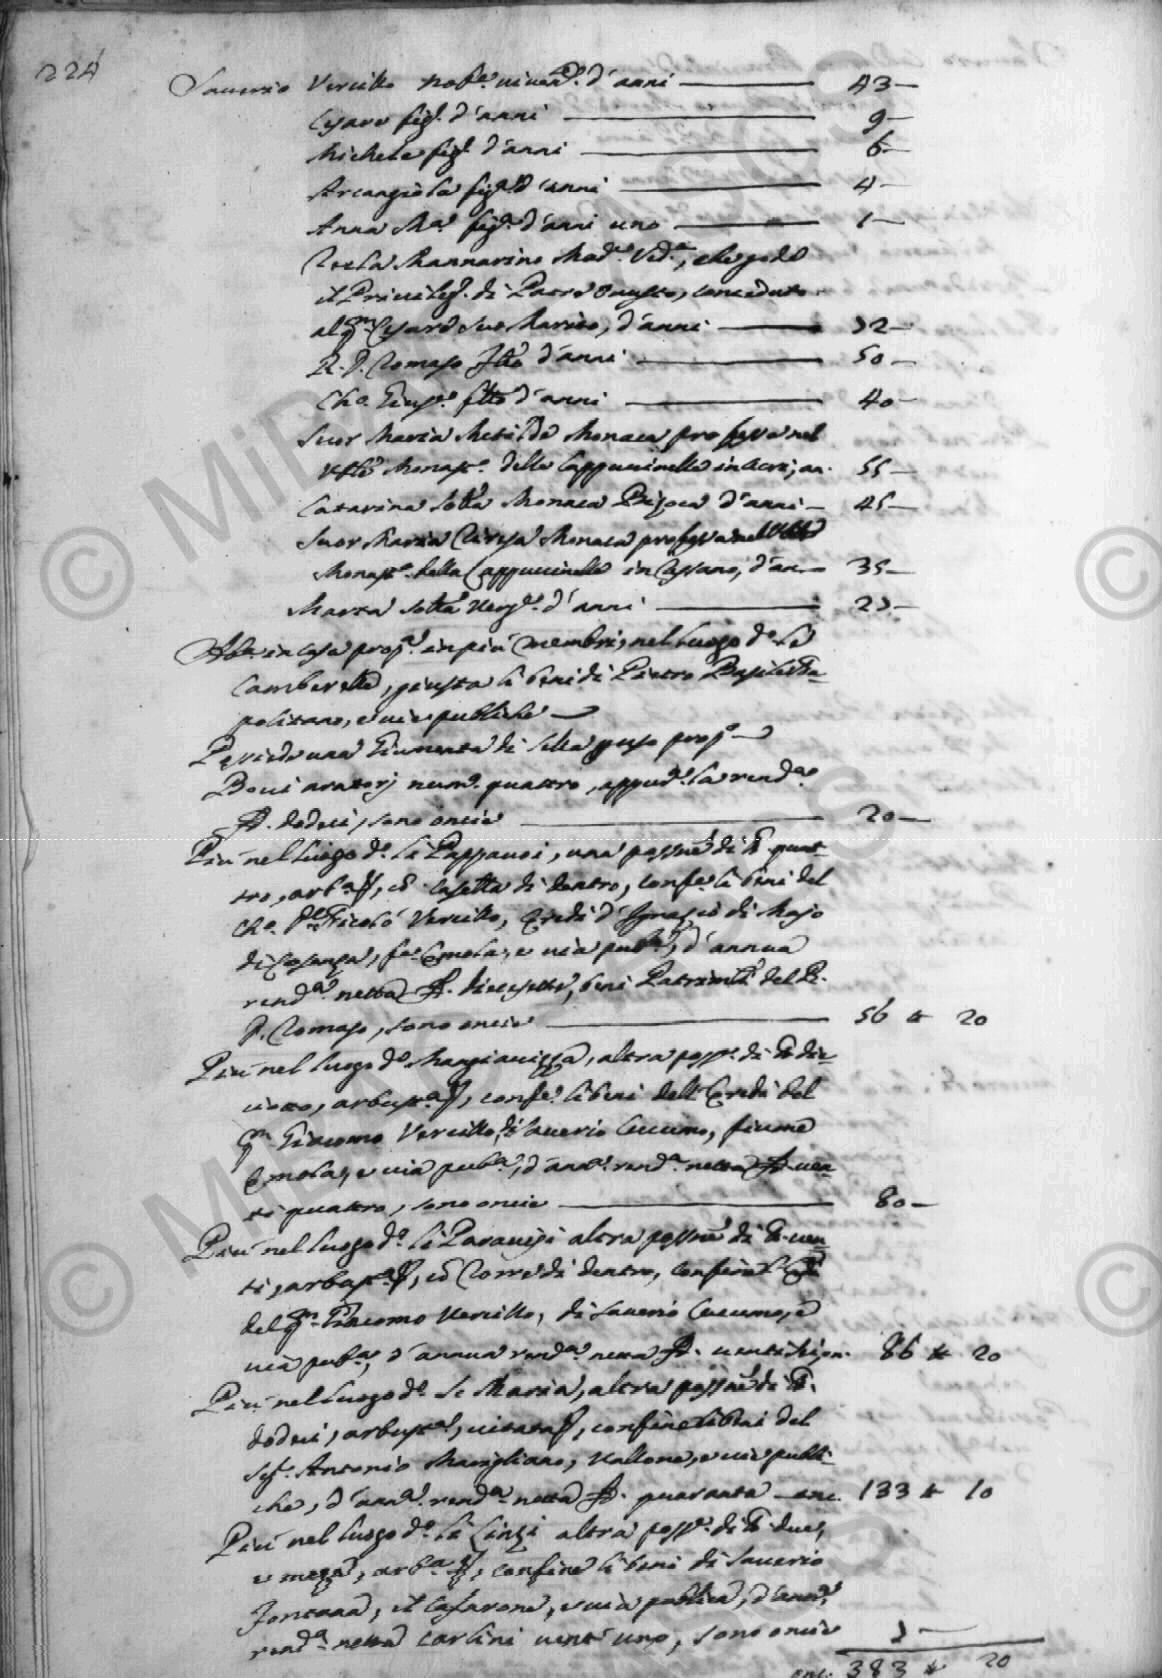 224
Saverio Vercillo nob.e viven.e d'anni 43
Cesare fig.o d'anni 9
Michele fig.o d'anni 6
Arcangiola fig.a d'anni 4
Anna M.a fig.a d'anni uno 1
Mannarino Mad.e Ved.a, che gode
il Privileg.o di Patre Onusto, conceduto
al q.m Cesare suo Marito, d'anni
R. D. Tomaso f.llo d'anni 50
Ch.o Gius.e f.llo d'anni 40
Suor Maria Metilde Monaca professa nel
Monast.o delle Cappuccinelle in Acri, an. 55
Catarina sol.a Monaca Bizoca d'anni 45
Suor Maria Teresa Monaca professa
Monast.o delle Cappuccinelle in , d'an. 35
Maria sol.a Verg.e d'anni
Ab.a in casa prop.a in più membri, nel luogo d.o le
, giusta li beni di Pietro Basile Na-
politano, e vie publiche
Possiede una Giumenta di sella per uso prop.o
Bovi aratorj num.o quattro, appur.o la rend.a
D. dodeci, sono oncie 20
Più nel luogo d.o li Pappauoi, una poss.ne di t. quat-
tro, arb.ta, co casetta di dentro, conf.e li beni del
Ch.o D. Nicolò Vercillo, Eredi d'Ignazio di Majo
di Cosenza, fe. Emola, e via pub.a, d'annua
rend.a netta D. diecesette, beni Patrim.li del R.
D. Tomaso, sono oncie 56 20
Più nel luogo d.o Mangiavizza, altra poss.e di t. die-
ciotto, arbust.a, conf.e li beni dell'Eredi del
q.m Giacomo Vercillo, di Saverio Cucumo, fiume
Emola, e via pub.a, d'an.a rend.a netta D. ven-
ti quattro, sono oncie 80
Più nel luogo d.o li Paravisi altra poss.ne di t. ven-
ti, arbust.a, co Torre di dentro, confine
del q.m Giacomo Vercillo, di Saverio Cucumo, e
via pub.a, d'annua rend.a netta D. ventisei, on. 86 20
Più nel luogo d.o S. Maria, altra poss.ne di t.
dodeci, arbust.a, vitata, confine li beni del
Sig.r Antonio Marigliano, Vallone, e vie publi-
che, d'ann.a rend.a netta D. quaranta onc. 133 10
Più nel luogo d.o li Cinzi altra poss.e di t. due,
e mezza, arb.a, confine li beni di Saverio
Fontana, il Casarone, e via publica, d'ann.a
rend.a netta carlini vent'uno, sono oncie
onc. 383 20